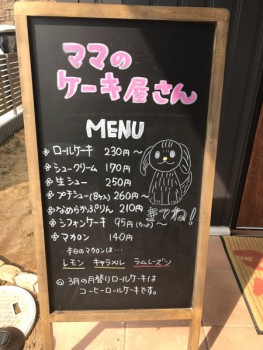 ママの
ケーキ屋さん
MENU
ロールケーキ 230円～
シュークリーム 170円
生シュー 250円
プチシュー(8ヶ入) 260円～
なめらかぷりん 210円
シフォンケーキ 95円(カット)～
マカロン 140円
来てね!
今日のマカロンは…
レモン キャラメル ラムレーズン
◎ 3月の月替りロールケーキは
コーヒーロールケーキです。